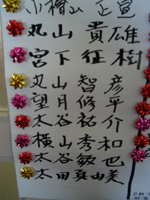 小檜山 正
丸山 貴雄
宮下 征樹
丸山 智彦
望月 修平
太谷 祐介
横山 秀和
太谷 敏也
太田 真由美